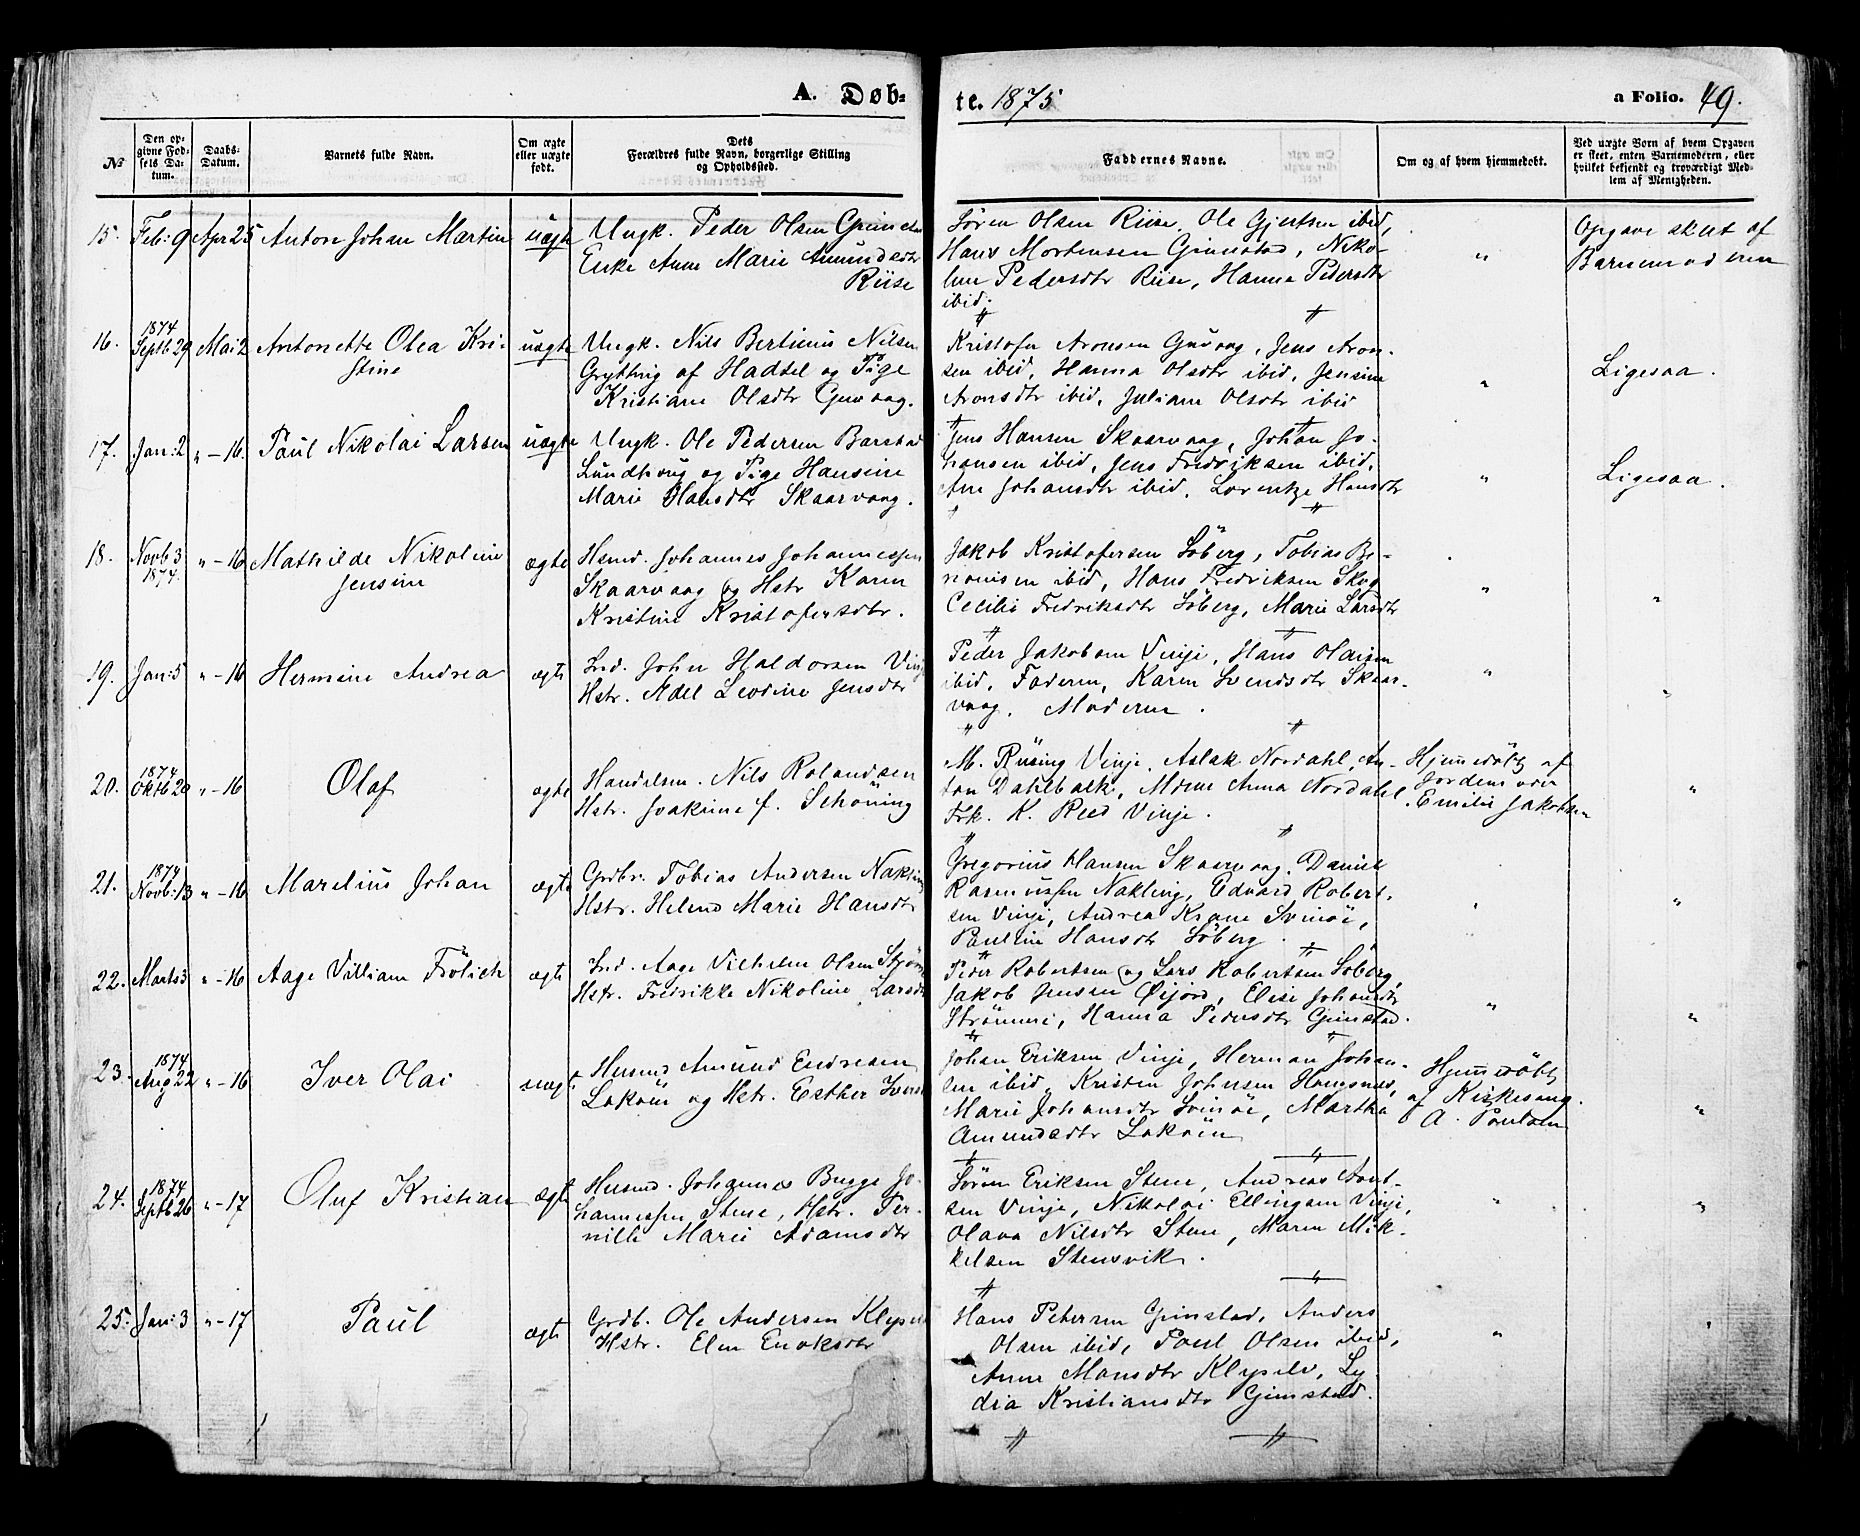 A. Døb-
te. 1875
a Folio. 49.
No
Den op-
givne Fød-
sels Da-
tum.
Daabs-
Datum.
Barnets fulde Navn.
Om ægte
eller uægte
født.
Dets
Forældres fulde Navn, borgerlige Stilling
og Opholdssted.
Faddernes Navne.
Om og af hvem hjemmedøbt.
Ved uægte Børn af hvem Opgaven
er skeet, enten Barnemoderen, eller
hvilket bekjendt og troværdigt Med-
lem af Menigheden.
15. Feb: 9 Apr 25 Anton Johan Martin uægte
Ungk. Peder Olsen
Enke Anne Marie Amundsdtr
Riise
Søren Olsen Riise, Ole Gjertsen ibid,
Hans Mortensen Gimstad, Niko-
line Pedersdtr Riise, Hanna Pedersdtr
ibid.
Opgave skeet af
Barnemoderen
16. 1874 Septb 29 Mai 2 Antonette Olea Kri-
stine
uægte
Ungk. Nils Bertinus Nilsen
Grytting af Hadsel og Pige
Kristiane Olsdtr Guvaag.
Kristofer Aronsen Guvaag, Jens Aron-
sen ibid, Hanna Olsdtr ibid, Jensine
Aronsdtr ibid, Juliane Olsdtr ibid
"
Ligesaa.
17. Jan: 2 " - 16. Paul Nikolai Larsen uægte
Ungk. Ole Pedersen Barstad
og Pige Hansine
Marie Hansdtr Skaarvaag.
Jens Hansen Skaarvaag, Johan Jo-
hansen ibid, Jens Fredriksen ibid,
Ane Johansdtr ibid, Lorentze Hansdtr
"
Ligesaa.
18. Novb 3 1874. " - 16 Mathilde Nikoline
Jensine
ægte
Hsmd. Johannes Johannessen
Skaarvaag og Hstr Karen
Kristine Kristofersdtr.
Jakob Kristofersen Söberg, Tobias Be-
nonisen ibid, Hans Fredriksen
Cecilie Fredriksdtr Söberg, Marie Larsdtr
"
"
19. Jan: 5 " - 16 Hermine Andrea ægte
Ind. John Haldorsen
Hstr. Adel Leodine Jensdtr
Peder Jakobsen Vinje, Hans
ibid, Faderen, Karen Svendsdtr Skaar-
vaag, Moderen.
"
"
20. 1874 Oktb 20 " - 16 Olaf ægte
Handelsm. Nils Rolandsen
Hstr. Joakime f. Schöning
M. Rüsing Vinje, Aslak Nordahl, An-
ton Dahlbak, Mdme Anna Nordahl,
Frk. K. Reed Vinje.
Hjemmedöbt af
Jordemoder
Emilie Jakobsen
"
21. 1874 Novb: 13 " - 16 Marelius Johan ægte
Grdbr. Tobias Andersen
Hstr. Helene Marie Hansdtr
Gregorius Hansen Skaarvaag, Daniel
Rasmussen Nakling, Edvard Robert-
sen Vinje, Andrea Krane Svinöi,
Pauline Hansdtr Söberg.
"
"
22. Marts 3 " - 16 Aage Villiam Frölich ægte
Ind. Aage Vilhelm Olsen
Hstr. Fredrikke Nikoline Larsdtr
Peder Robertsen og Lars Robertsen Söberg,
Jakob Jensen Öijord, Elise Johansdtr
Strömme, Hanna Pedersdtr Gimstad.
"
"
23. 1874 Aug 22 " - 16 Iver Olai
Husmd Amund Endresen
Laköin og Hstr. Esther
Johan Eriksen Vinje, Herman Johan-
sen ibid, Kristen Johnsen
Marie Johansdtr Svinöi, Martha
Amundsdtr Laköin
Hjemmedöbt
af Kirkesang.
A. Paulsen
"
24. 1874 Septb 26 " - 17 Oluf Kristian ægte
Husmd. Johannes Bugge Jo-
hannessen Stene, Hstr. Per-
nille Marie Adamsdtr
Sören Eriksen Stene, Andreas
sen Vinje, Nikolai Ellingsen Vinje,
Olava Nilsdtr Stene, Maren Mik-
kelsen Stensvik.
"
"
25. Jan: 3 " - 17 Paul ægte
Grdb. Ole Andersen
Hstr. Elen Enoksdtr
Hans Petersen Gimstad, Anders
Olsen ibid, Poul Olsen ibid,
Anne Hansdtr Klypile, Ly-
dia Kristiansdtr Gimstad.
"